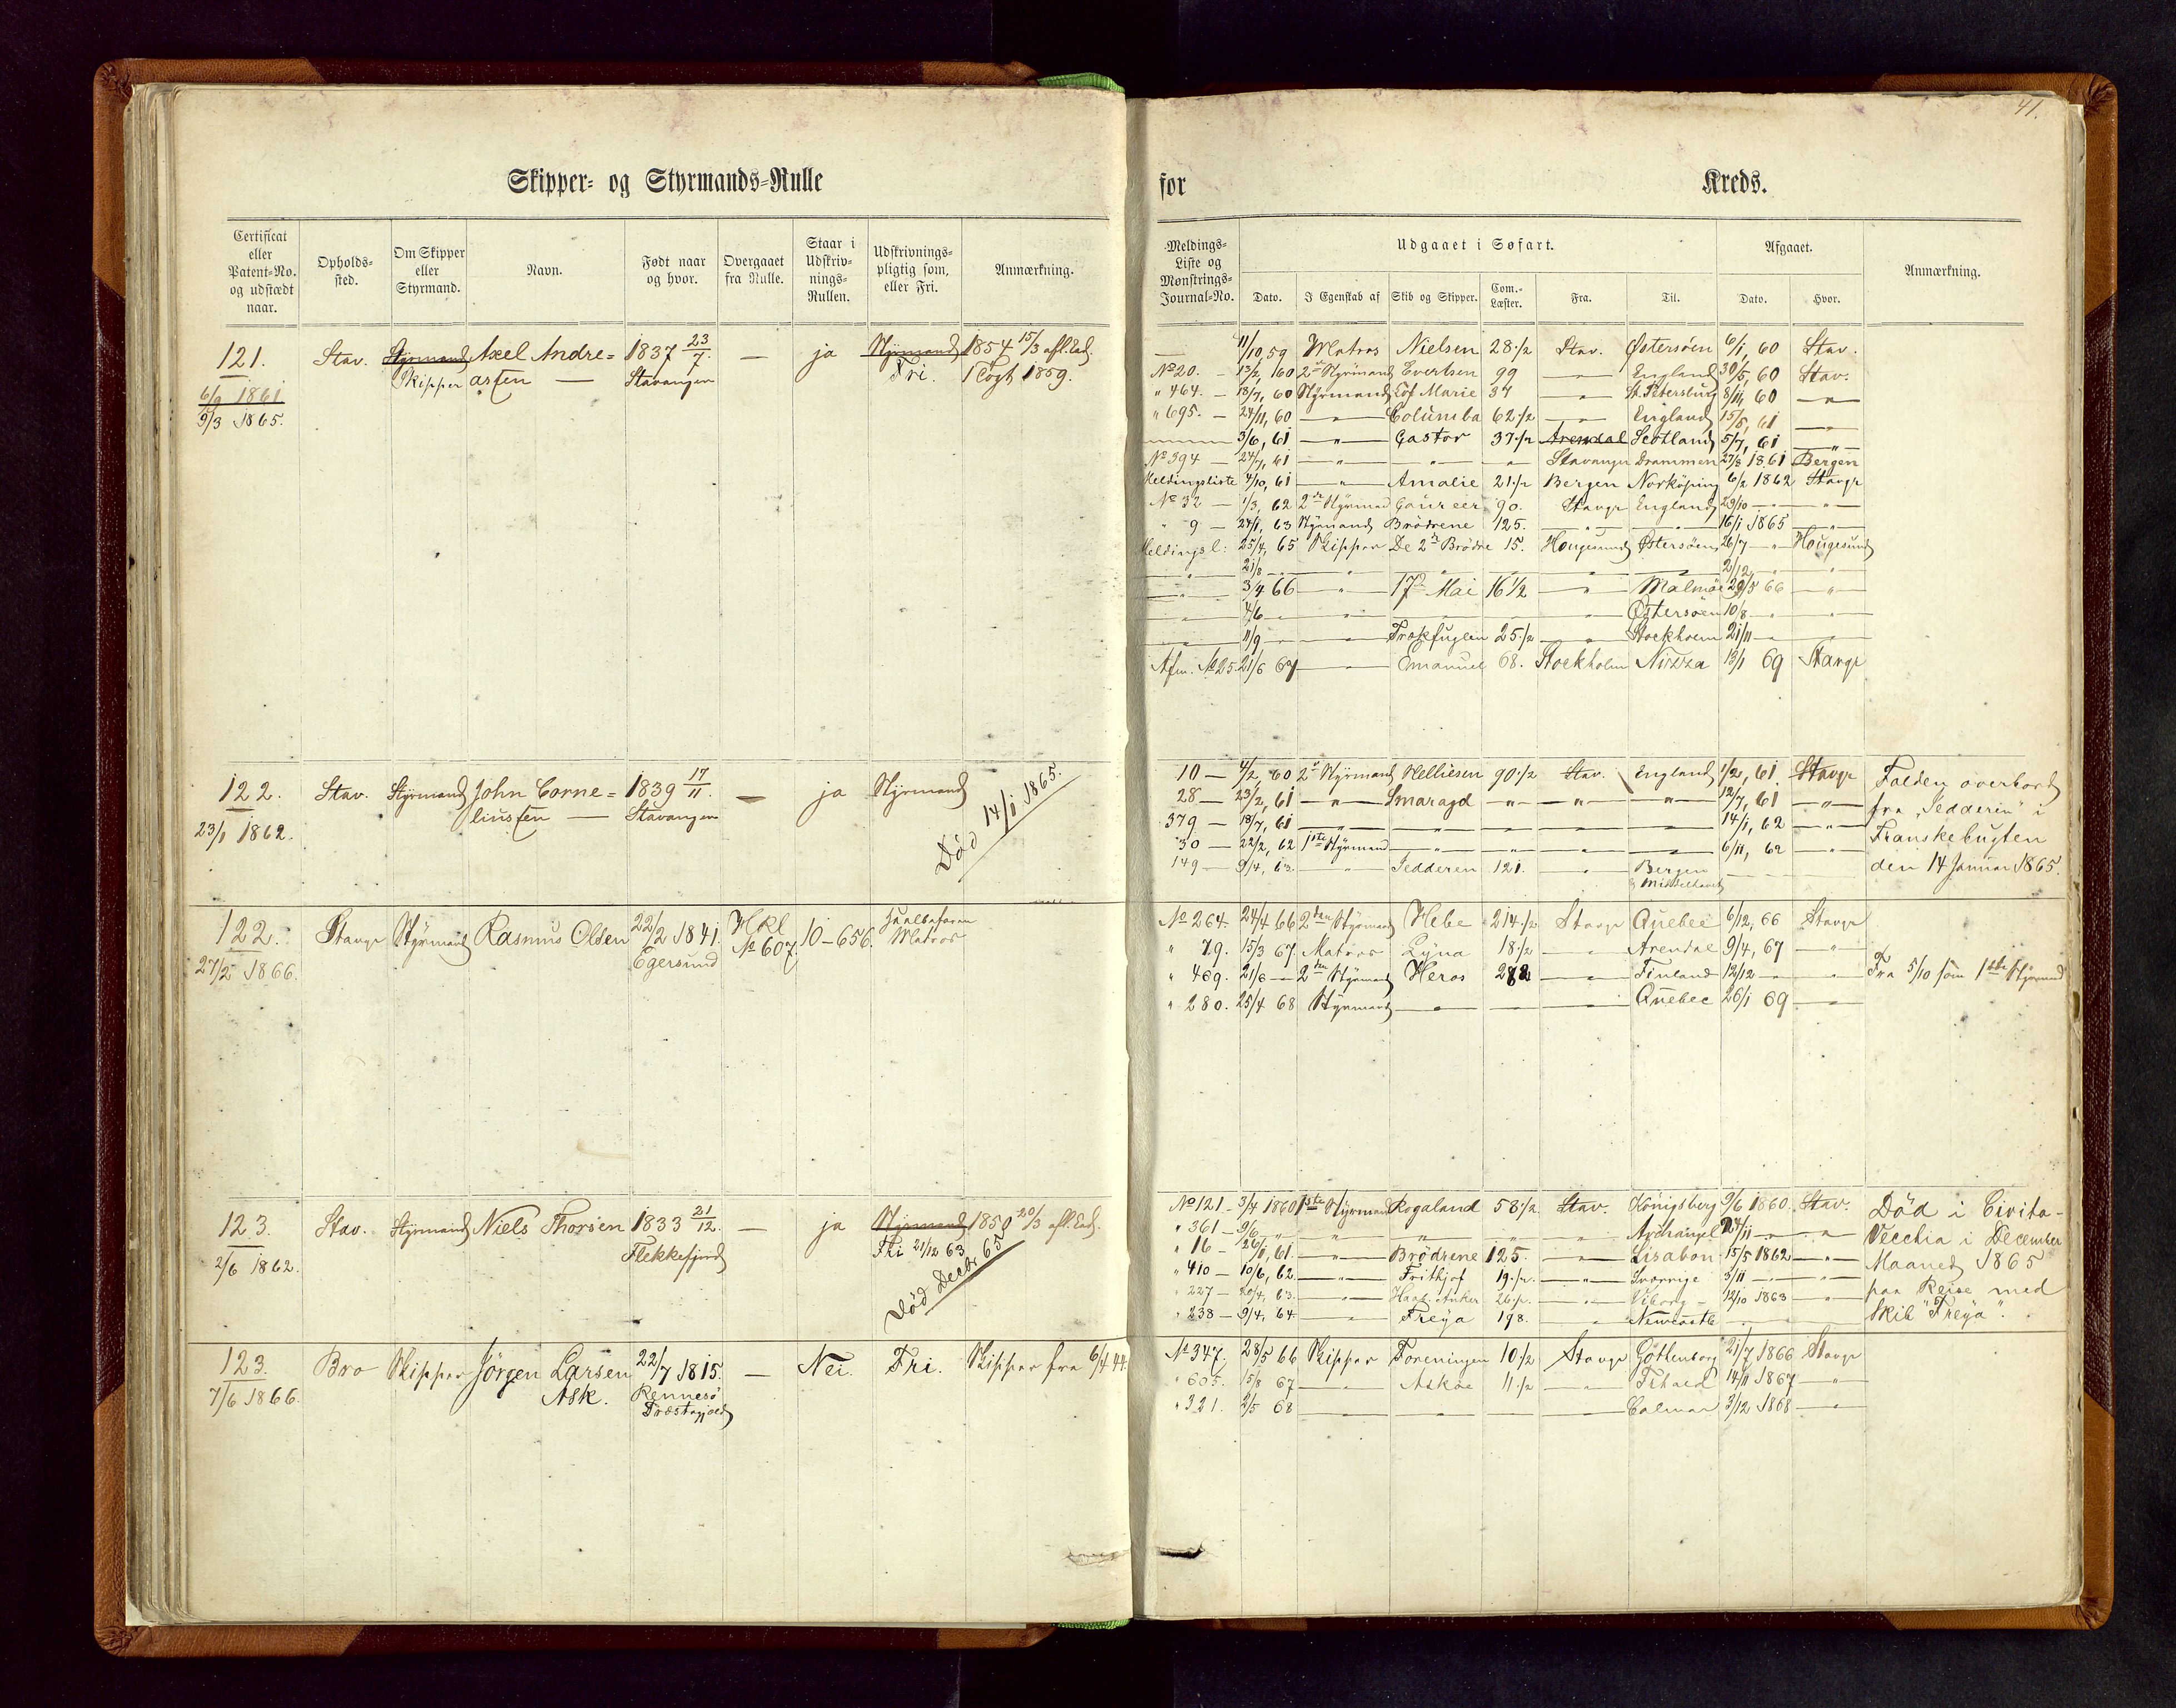 41.
Skipper- og Styrmands-Rulle
for Kreds.
Certificat eller Patent-No. og udstædt naar.
Opholds-sted.
Om Skipper eller Styrmand.
Navn.
Født naar og hvor.
Overgaaet fra Rulle.
Staar i Udskriv-nings-Rullen.
Udskrivnings-pligtig som, eller Fri.
Anmærkning.
Meldings-Liste og Mønstrings-Journal-No.
Udgaaet i Søfart.
Dato. I Egenskab af Skib og Skipper. Com.-Læster. Fra. Til.
Afgaaet.
Dato. Hvor.
Anmærkning.
121. Stav. Styrmand Axel Andre= 1837 23/7. — ja Styrmand 1854 15/3 afl. Ed.
Skipper asen — Stavanger Fri. 1 Togt 1859.
6/9 1861
9/3 1865.
— 11/10, 59 Matros Nielsen 28 1/2 Stav. Østersøen 6/1, 60 Stav.
No 20. — 13/2, 60 2den Styrmand Evertsen 99 — England 30/5, 60 Stav.
" 464. — 18/7, 60 Styrmand Elof Marie 34 — St. Petersburg 8/11, 60 — " —
" 695. — 24/11, 60 — " — Columba 62 1/2 — " — England 15/5, 61 — " —
— 3/6, 61 — " — Gastor 37 1/2 Arendal Scotland 5/7, 61 — " —
No 394 — 24/7, 61 — " — — " — — " — Stavanger Drammen 27/8 1861 Bergen
Meldingsliste 4/10, 61 — " — Amalie 21 1/2 Bergen Norköping 6/2 1862 Stavgr
No 32 — 1/3, 62 2den Styrmand 90. Stavgr England 29/10 — " — — " —
" 9 — 24/1, 63 Styrmand Brødrene 125. — " — — " — 16/1 1865 — " —
Meldingsl: 25/4, 65 Skipper De 2de Brødre 15. Hougesund Østersøen 26/7 — " — Hougesund
— " — 21/8 — " — — " — — " — — " — — " — 2/12 — " — — " —
— " — 3/4 66 — " — 17de Mai 16 1/2 — " — Malmøe 29/5 66 — " —
— " — 4/6 — " — — " — — " — — " — Østersøen 10/8 — " — — " —
— " — 11/9 — " — — " — Trækfuglen 25 1/2 — " — Stockholm 21/11 — " — — " —
Afm. No 25. 21/6 67 — " — Emanuel 68. Stockholm Nizza 13/1 69 Stavgr
122. Stav. Styrmand John Corne= 1839 17/11. — ja Styrmand
linsen — Stavanger
23/1 1862.
Død 14/1 1865.
10 — 4/2, 60 2den Styrmand Helliesen 90 1/2 Stav. England 1/2, 61 Stavgr
28 — 23/2, 61 — " — Smaragd — " — — " — — " — 12/7, 61 — " —
379 — 18/7, 61 — " — — " — — " — — " — — " — 14/1, 62 — " —
30 — 22/2, 62 1ste Styrmand — " — — " — — " — — " — 6/11, 62 — " —
149 — 9/4, 63. — " — Jedderen 121. — " — Bergen
& Middelhavet
Falden overbord
fra "Jedderen" i
Franskebugten
den 14 Januar 1865.
122. Stavgr Styrmand Rasmus Olsen 22/2 1841. Hkl No 607. 10-656. Hvalbefaren
Egersund Matros
27/2 1866.
No 264. 24/4 66 2den Styrmand Hebe 214 1/2 Stavgr Quebec 6/12, 66 Stavgr
" 79. 15/3 67. Matros Lÿna 18 1/2 — " — Arendal 9/4, 67 — " —
" 469. 21/6 — 2den Styrmand Heros 282 — " — Finland 12/12 — " — — " — Fra 5/10 som 1ste Styrmand
" 280. 25/4 68 Styrmand — " — — " — — " — Quebec 26/1 69 — " —
123. Stav. Styrmand Niels Thorsen 1833 21/12. — ja Styrmand 1850 20/3 afl. Ed.
Flekkefjord Fri 21/12 63
2/6 1862.
Død Decbr 65
No 121 — 3/4 1860 1ste Styrmand Rogaland 58 1/2 Stav. Königsberg 9/6 1860. Stav.
" 361 — 9/6 — " — — " — — " — — " — Archangel 24/11 — " — — " —
" 16 — 26/1, 61. — " — Brødrene 125. — " — Lisabon 15/5 1862 — " —
" 410 — 10/6, 62 — " — Frithjof 19 1/2. — " — Sverrige 3/11 — " — — " —
" 227 — 20/4, 63. — " — Haab. Anker 26 1/2. — " — Viborg — 12/10 1863 — " —
" 238 — 9/4, 64. — " — Freÿa 198. — " — Newcastle
Død i Civita-
Vecchia i December
Maaned 1865
paa Reise med
Skib "Freÿa".
123. Bro Skipper Jørgen Larsen 22/7 1815. — Nei. Fri. Skipper fra 6/4 44
Ask. Rennesø
Præstegjeld
7/6 1866.
No 347. 28/5 66 Skipper Foreningen 10 1/2 Stavgr Gøttenborg 21/7 1866 Stavgr
" 605. 15/8 67 — " — Askøe 11 1/2 — " — 14/11 1867 — " —
" 321. 2/5 68 — " — — " — — " — — " — Calmar 3/12 1868 — " —